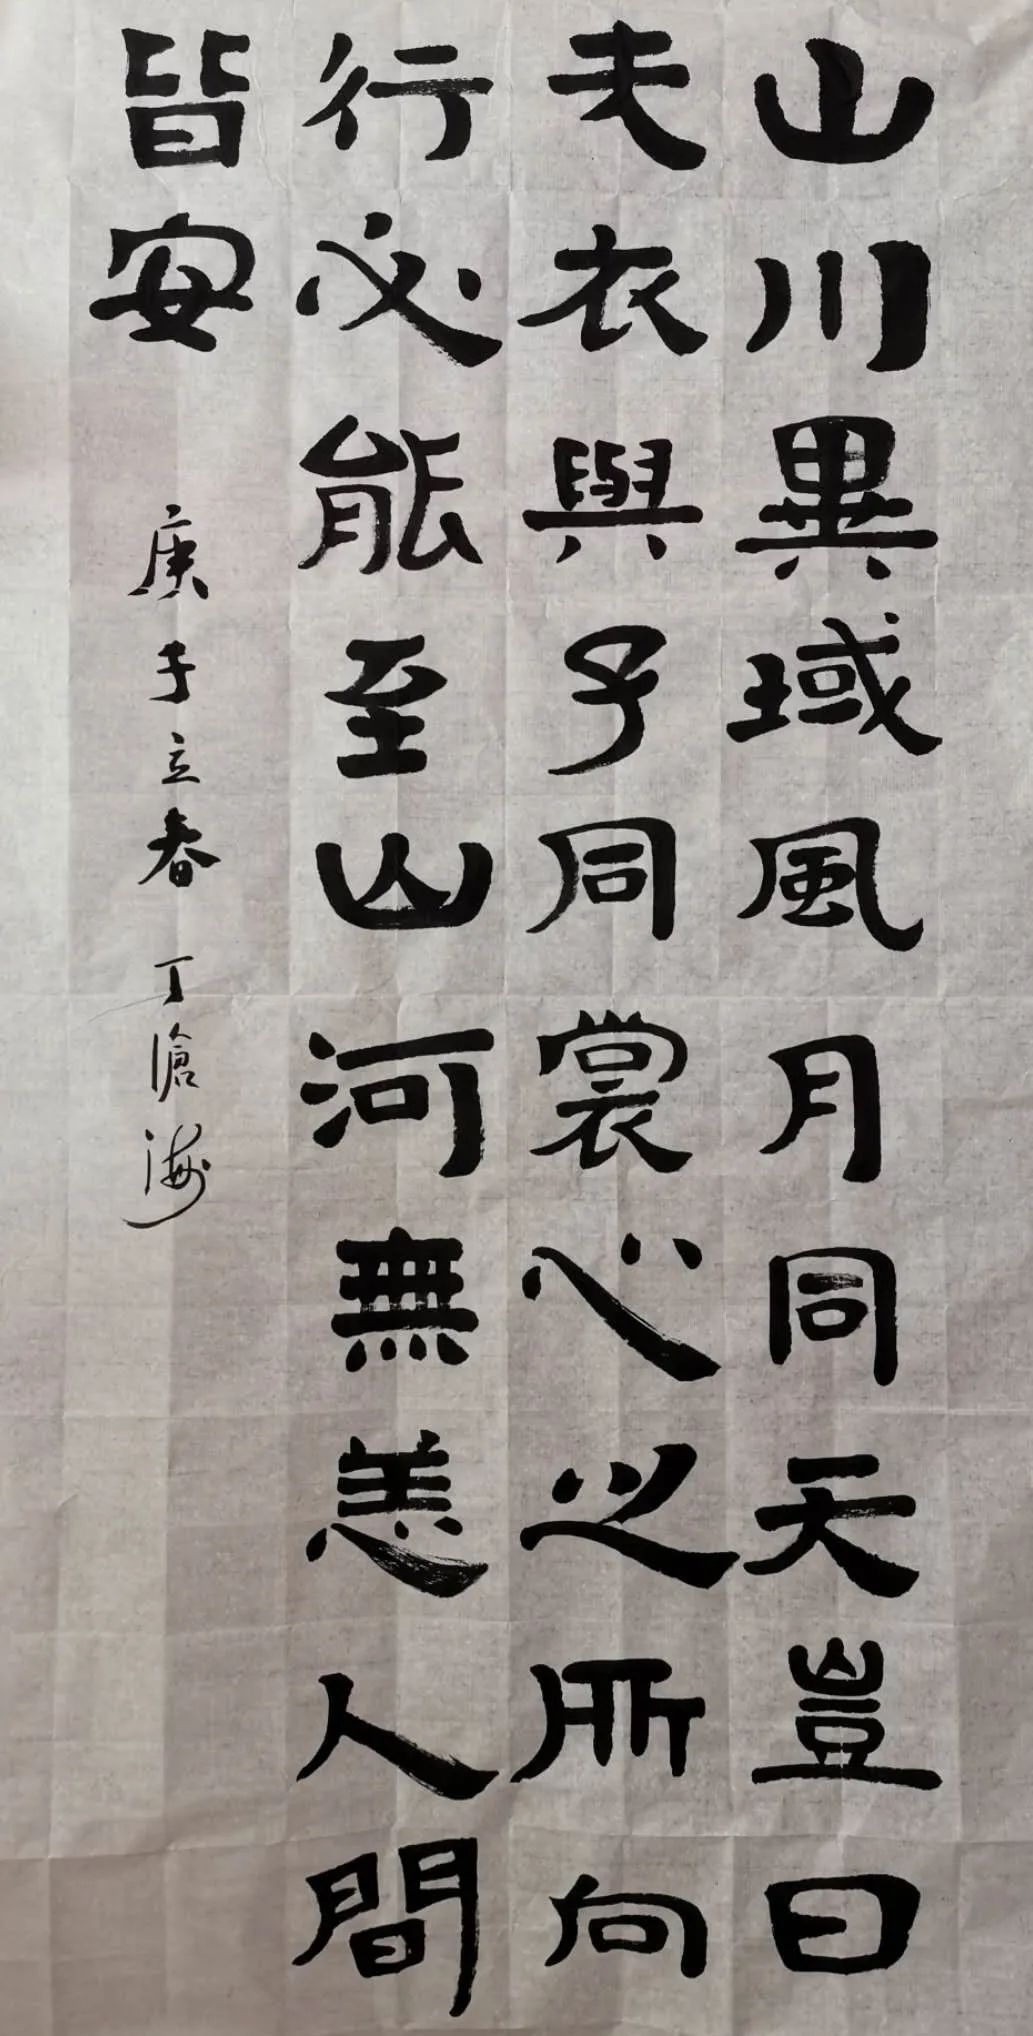 山川異域風月同天豈曰
无衣與子同裳心之所向
行必能至山河無恙人間
皆安
庚子立春丁滄海